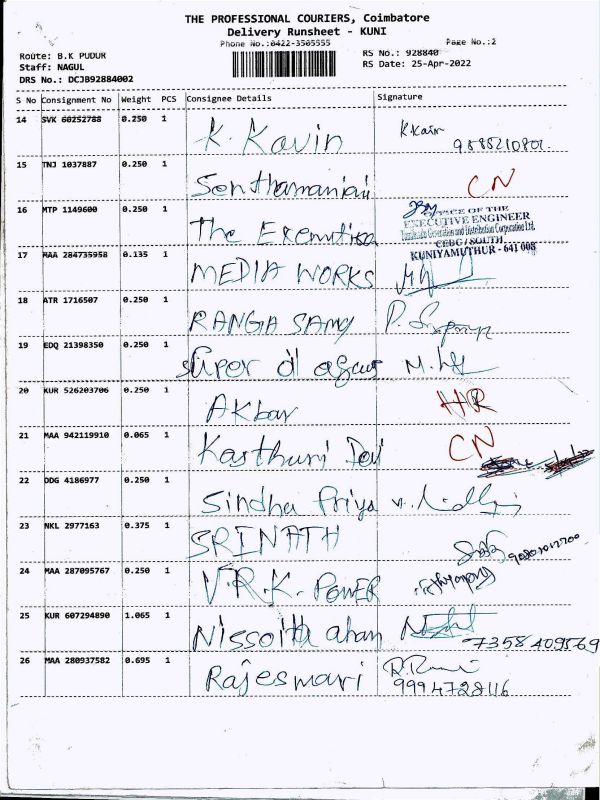 THE PROFESSIONAL COURIERS, Coimbatore
Delivery Runsheet - KUNI
Phone No.:0422-3505555 Page No.:2
Route: B.K PUDUR RS No.: 928840
Staff: NAGUL RS Date: 25-Apr-2022
DRS No.: DCJB92884002
S No Consignment No Weight PCS Consignee Details Signature
14 SVK 60252788 0.250 1 K. Kavin K Kavin
15 TNJ 1037887 0.250 1 CN
16 MTP 1149600 0.250 1 The OFFICE OF THE
EXECUTIVE ENGINEER
Tamilnadu Generation and Distribution Corporation Ltd.
CEDC / SOUTH
KUNIYAMUTHUR - 641 008
17 MAA 284735958 0.135 1 MEDIA WORKS
18 ATR 1716507 0.250 1 RANGA SAMY
19 EDQ 21398350 0.250 1
20 KUR 526203706 0.250 1 Akbar HR
21 MAA 942119910 0.065 1 Kasthuri Devi CN
22 ODG 4186977 0.250 1 Sindha Priya
23 NKL 2977163 0.375 1 SRINATH
24 MAA 287095767 0.250 1 V.R.K. POWER
25 KUR 607294890 1.065 1 7358409569
26 MAA 280937582 0.695 1 Rajesmari
9994728116